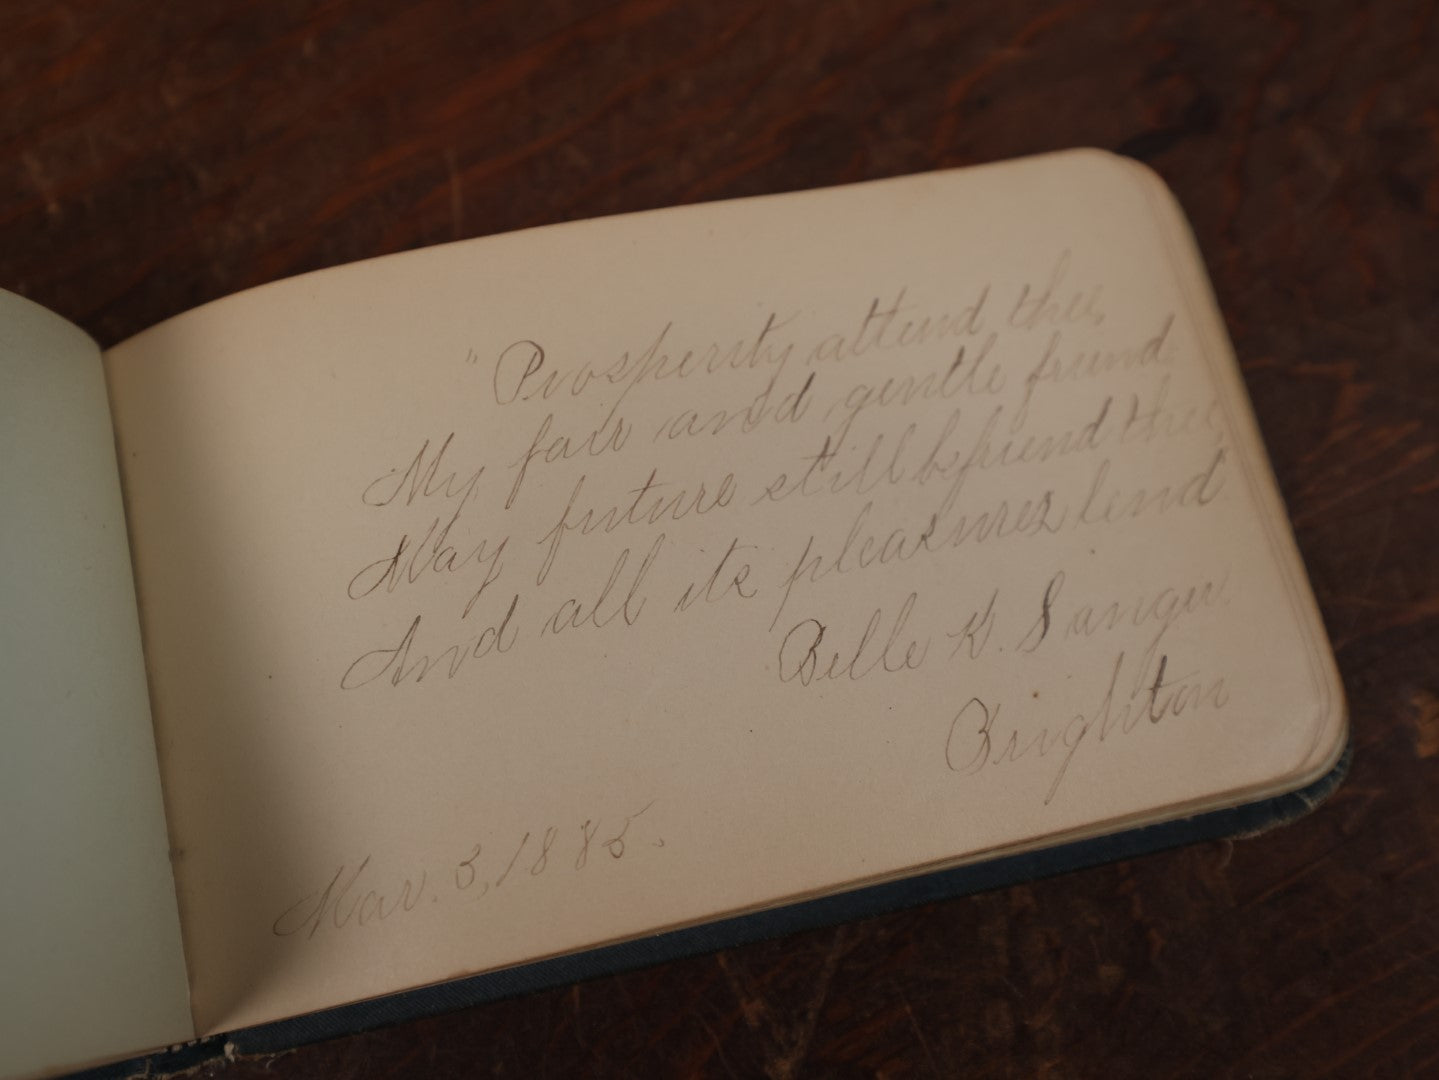 "Prosperity attend thee,
My fair and gentle friend
May future still befriend thee,
And all its pleasures lend
Belle K. Sanger.
Brighton
Mar. 3, 1885.